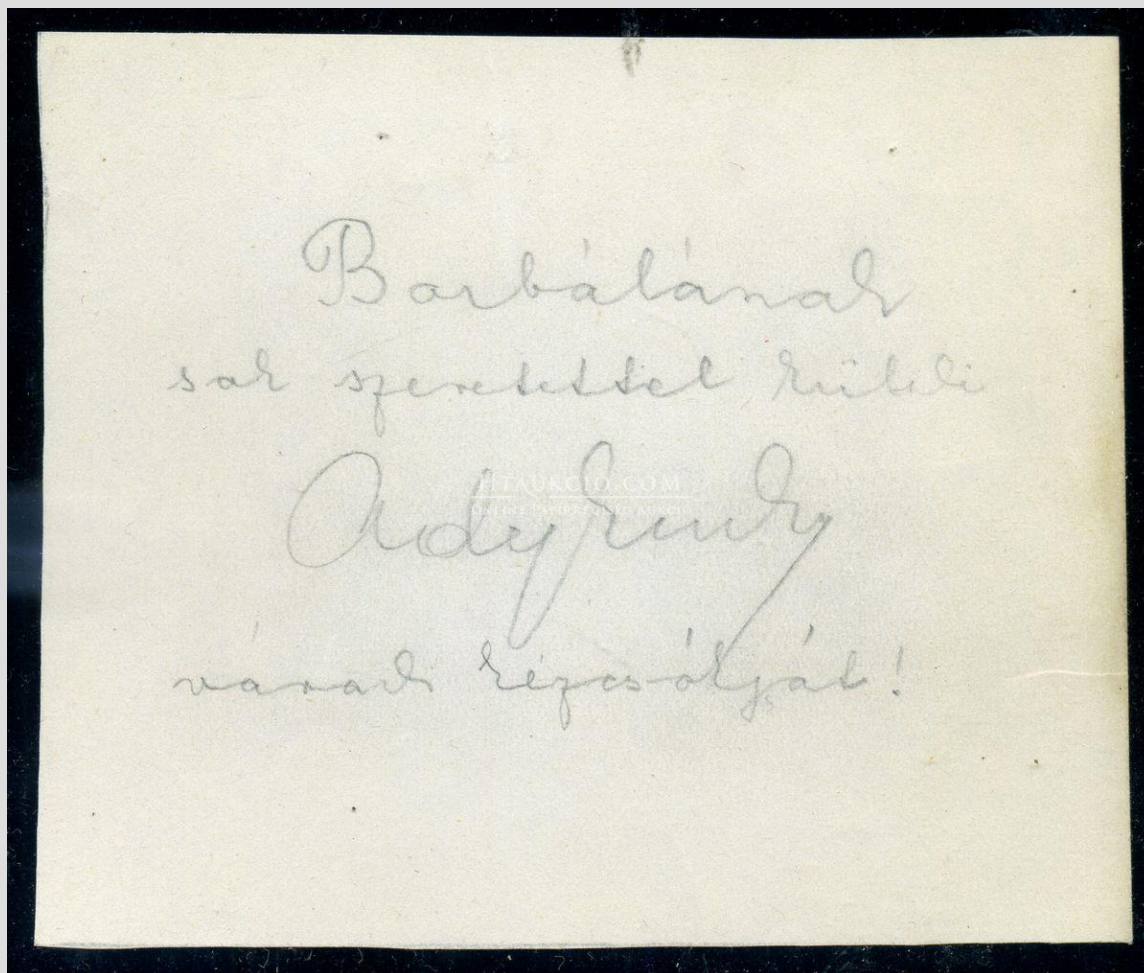 Borbálának
sok szeretettel küldi
Ady Endre
váradi kézcsókját!